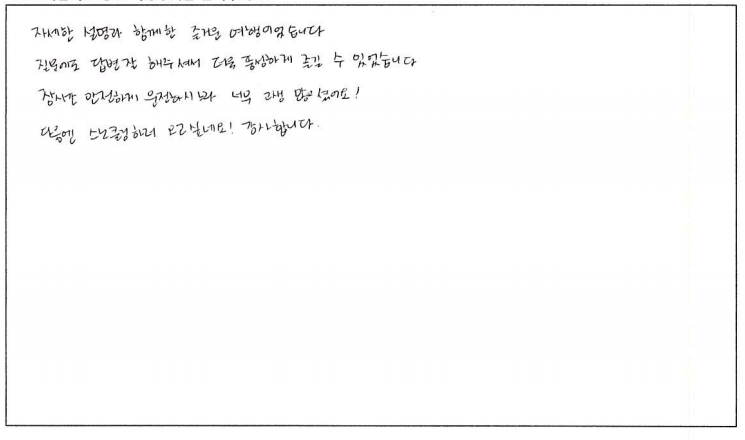 자세한 설명과 함께한 즐거운 여행이었습니다
질문에도 답변잘 해주셔서 더욱 풍성하게 즐길 수 있었습니다
장시간 안전하게 운전하시느라 너무 고생 많으셨어요!
다음엔 스노클링하러 오고싶네요! 감사합니다.